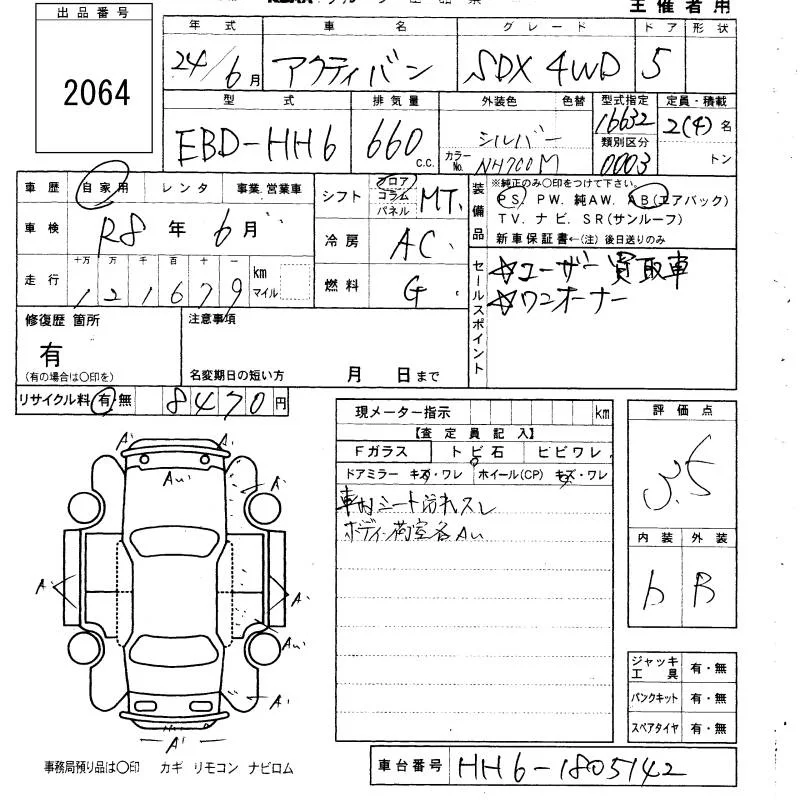 出品番号
2064
主催者用
年式 車名 グレード ドア 形状
24/6月 アクティバン SDX 4WD 5
型式 排気量 外装色 色替 型式指定 定員・積載
EBD-HH6 660 c.c. シルバー カラーNo. NH700M 16632 類別区分 0003 2(4)名 トン
車歴 自家用 レンタ 事業.営業車
シフト フロア コラム パネル MT.
装備品 ※純正のみ〇印をつけて下さい。
PS. PW. 純AW. AB(エアバック)
TV. ナビ. SR(サンルーフ)
新車保証書←(注) 後日送りのみ
車検 R8年 6月
冷房 AC
走行 十万 万 千 百 十 一
121679 km マイル
燃料 G
セールスポイント
☆ユーザー買取車
☆ワンオーナー
修復歴 箇所
有
(有の場合は〇印を)
注意事項
名変期日の短い方 月 日まで
リサイクル料 有・無 8470円
現メーター指示 km
【査定員記入】
Fガラス トビ石 ヒビワレ
ドアミラー キズ・ワレ ホイール(CP) キズ・ワレ
車内シート汚れスレ
ボディ・荷室各Au
評価点
3.5
内装 外装
b B
ジャッキ工具 有・無
パンクキット 有・無
スペアタイヤ 有・無
A' A'
Au
A' A'
A' A'
Au
A'
A'
事務局預り品は〇印 カギ リモコン ナビロム
車台番号 HH6-1805142